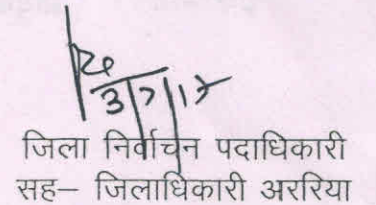 जिला निर्वाचन पदाधिकारी
सह– जिलाधिकारी अररिया